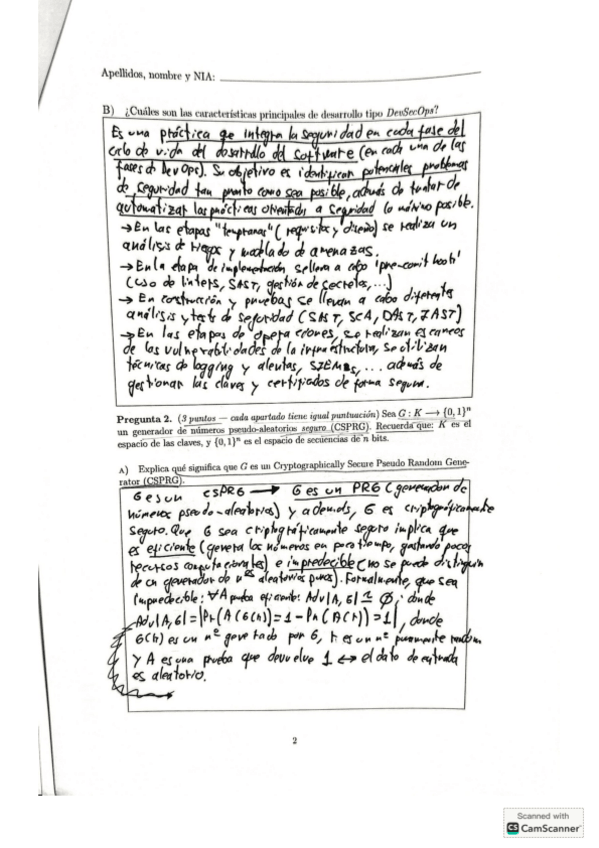 Apellidos, nombre y NIA:
B) ¿Cuáles son las características principales de desarrollo tipo DevSecOps?
Es una práctica que integra la seguridad en cada fase del
ciclo de vida del desarrollo del software (en cada una de las
fases de DevOps). Su objetivo es identificar potenciales problemas
de seguridad tan pronto como sea posible, además de tratar de
automatizar las prácticas orientadas a seguridad lo máximo posible.
→ En las etapas "tempranas" (requisitos y diseño) se realiza un
análisis de riesgos y modelado de amenazas.
→ En la etapa de implementación se lleva a cabo 'pre-comit hooks'
(uso de linters, SAST, gestión de secretos, ...)
→ En construcción y pruebas se llevan a cabo diferentes
análisis y tests de seguridad (SAST, SCA, DAST, IAST)
→ En las etapas de operaciones, se realizan escaneos
de las vulnerabilidades de la infraestructura, se utilizan
técnicas de logging y alertas, SIEMs, ... además de
gestionar las claves y certificados de forma segura.
Pregunta 2. (3 puntos — cada apartado tiene igual puntuación) Sea G : K ⟶ {0,1}ⁿ
un generador de números pseudo-aleatorios seguro (CSPRG). Recuerda que: K es el
espacio de las claves, y {0,1}ⁿ es el espacio de secuencias de n bits.
A) Explica qué significa que G es un Cryptographically Secure Pseudo Random Gene-
rator (CSPRG).
G es un CSPRG → G es un PRG (generador de
números pseudo-aleatorios) y además, G es criptográficamente
seguro. Que G sea criptográficamente seguro implica que
es eficiente (genera los números en poco tiempo, gastando pocos
recursos computacionales) e impredecible (no se puede distinguir
de un generador de nºs aleatorios puros). Formalmente, que sea
impredecible: ∀A prueba eficiente: Adv[A,G] ≃ 0; donde
Adv[A,G] = |Pr(A(G(k)) = 1 - Pr(A(r)) = 1|, donde
G(k) es un nº generado por G, r es un nº puramente random
y A es una prueba que devuelve 1 ↔ el dato de entrada
es aleatorio.
2
Scanned with
CS CamScanner